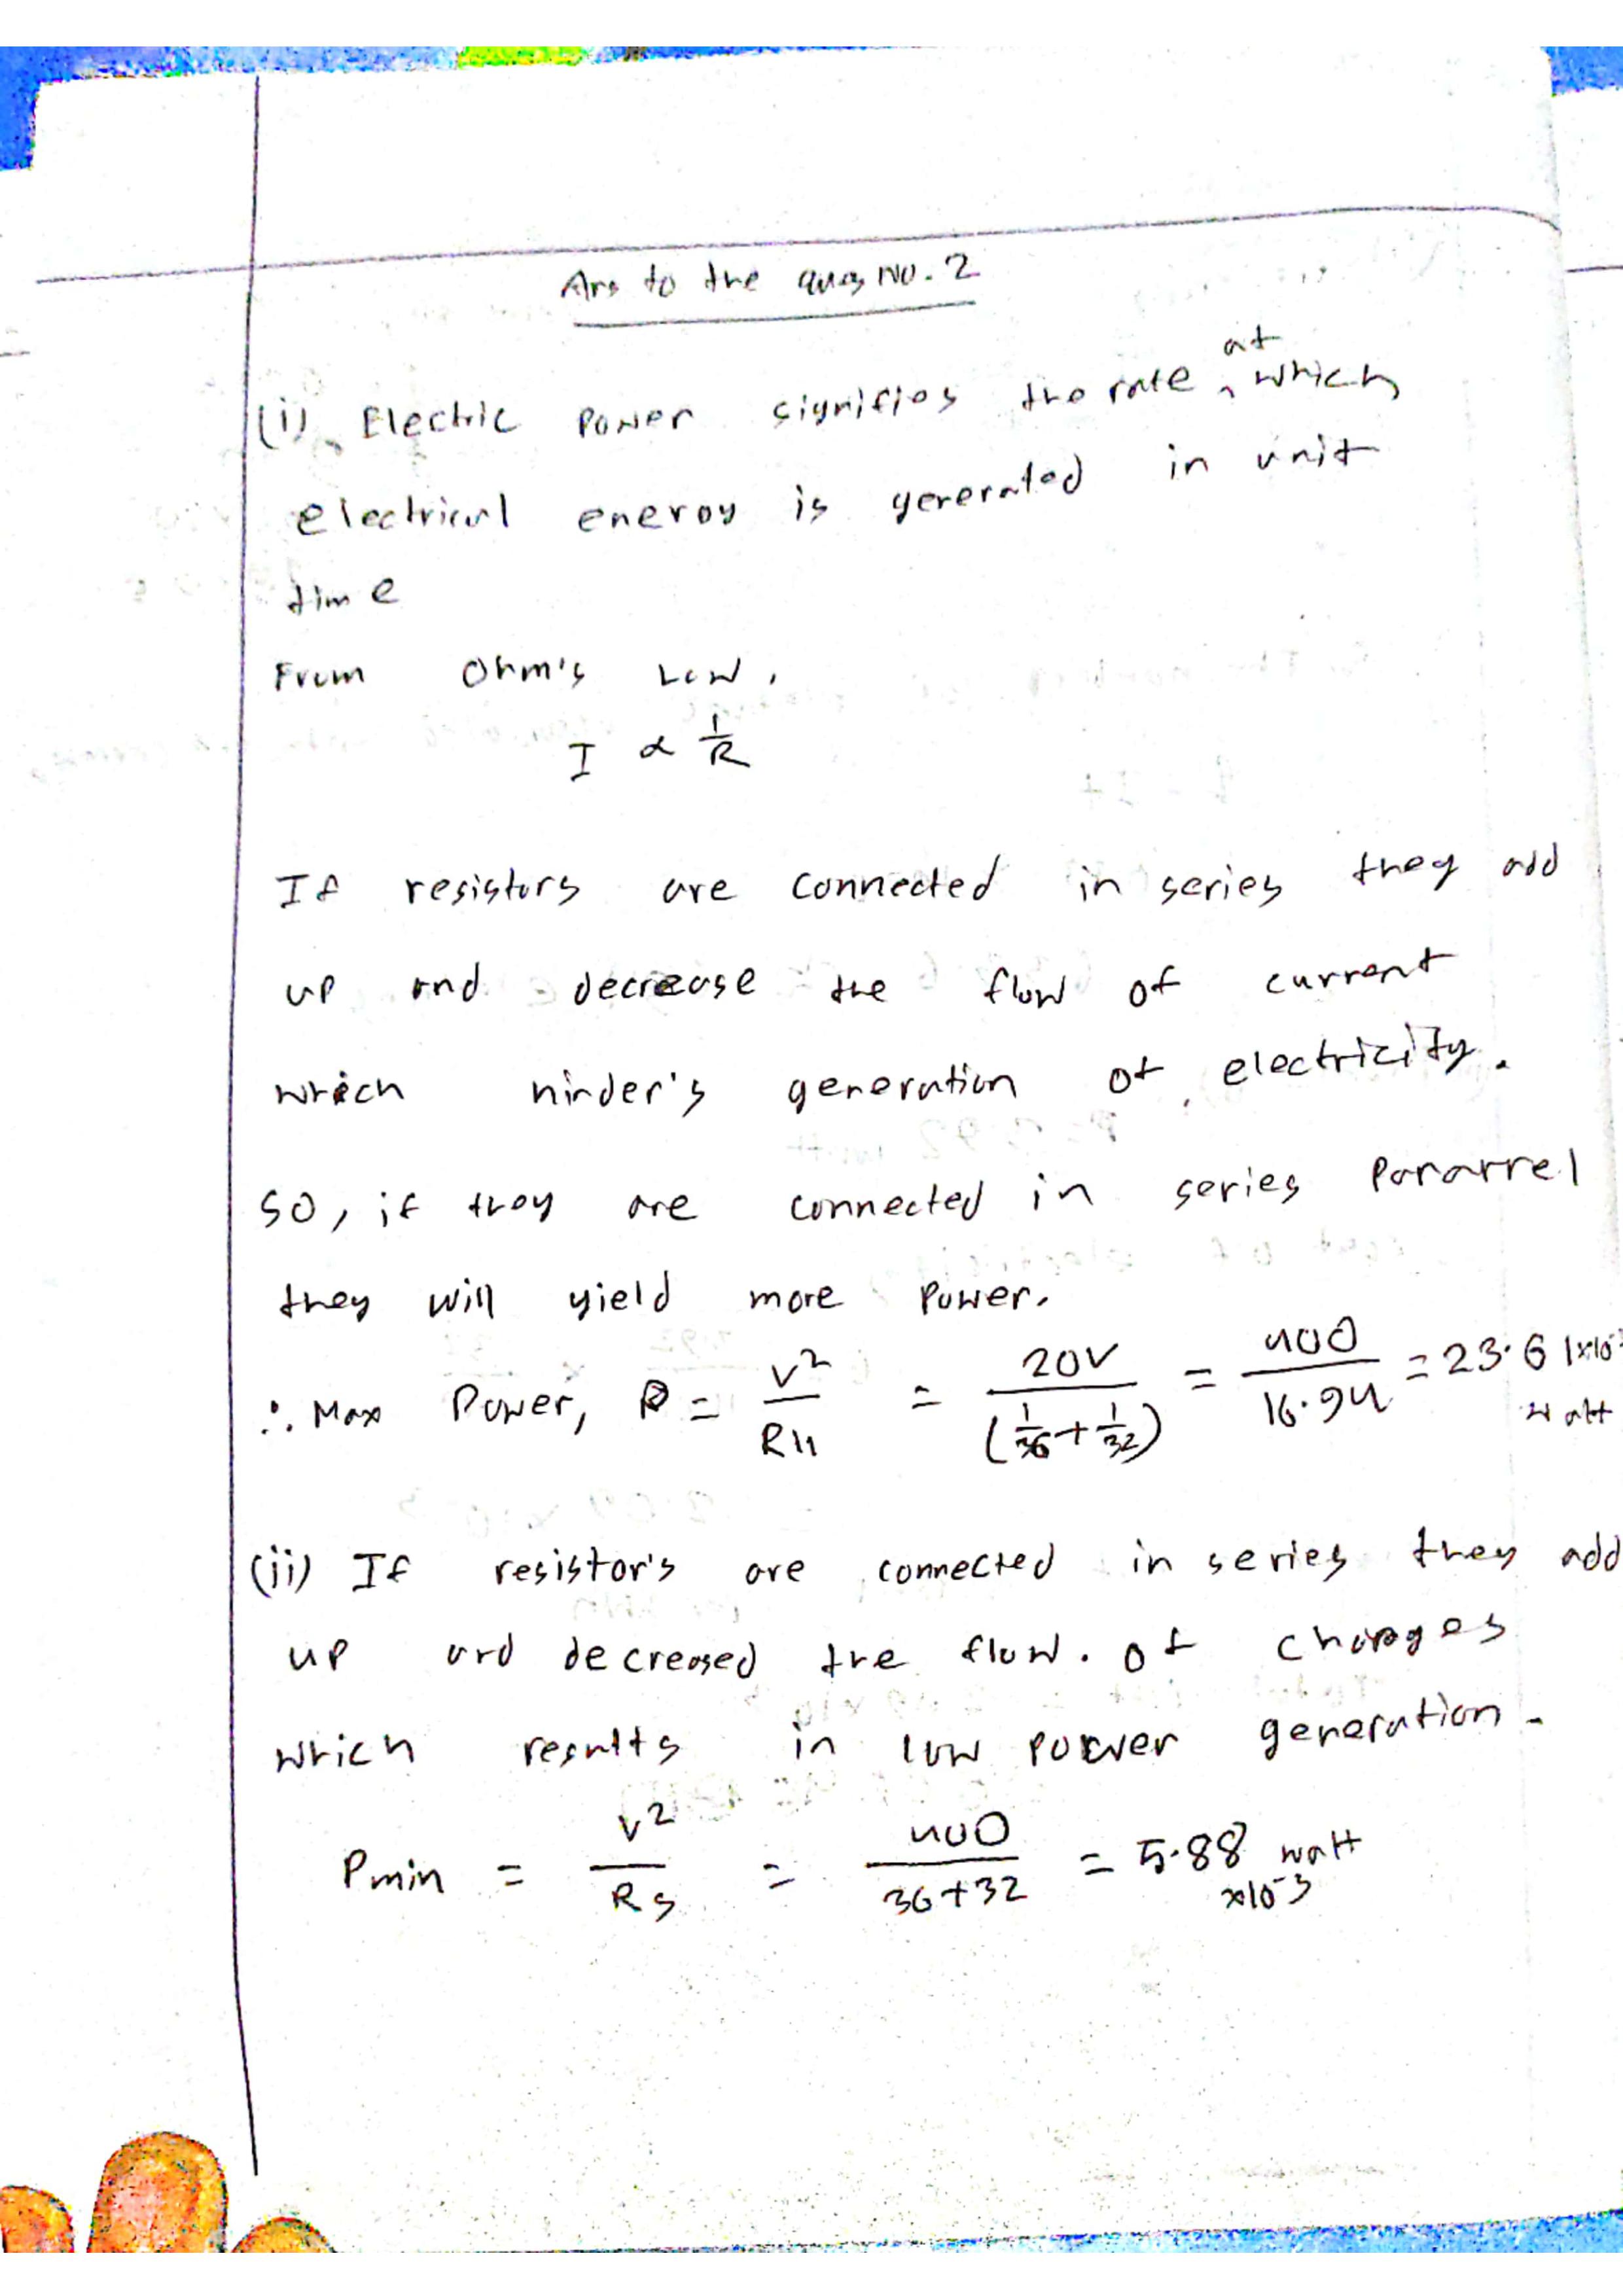 Ans to the ques No. 2
(i) Electric Power signifies the rate at which
electrical energy is generated in unit
time
From Ohm's Law,
I ∝ 1/R
If resistors are connected in series they add
up and decrease the flow of current
which hinder's generation of electricity.
so, if they are connected in series Pararrel
they will yield more Power.
∴ Max Power, P = V²/R11 = 20V/(1/36+1/32) = 400/16.94 = 23.61x10 watt
(ii) If resistor's are connected in series they add
up and decreased the flow. of charges
which results in low power generation.
Pmin = V²/Rs = 400/36+32 = 5.88 x10⁻³ watt